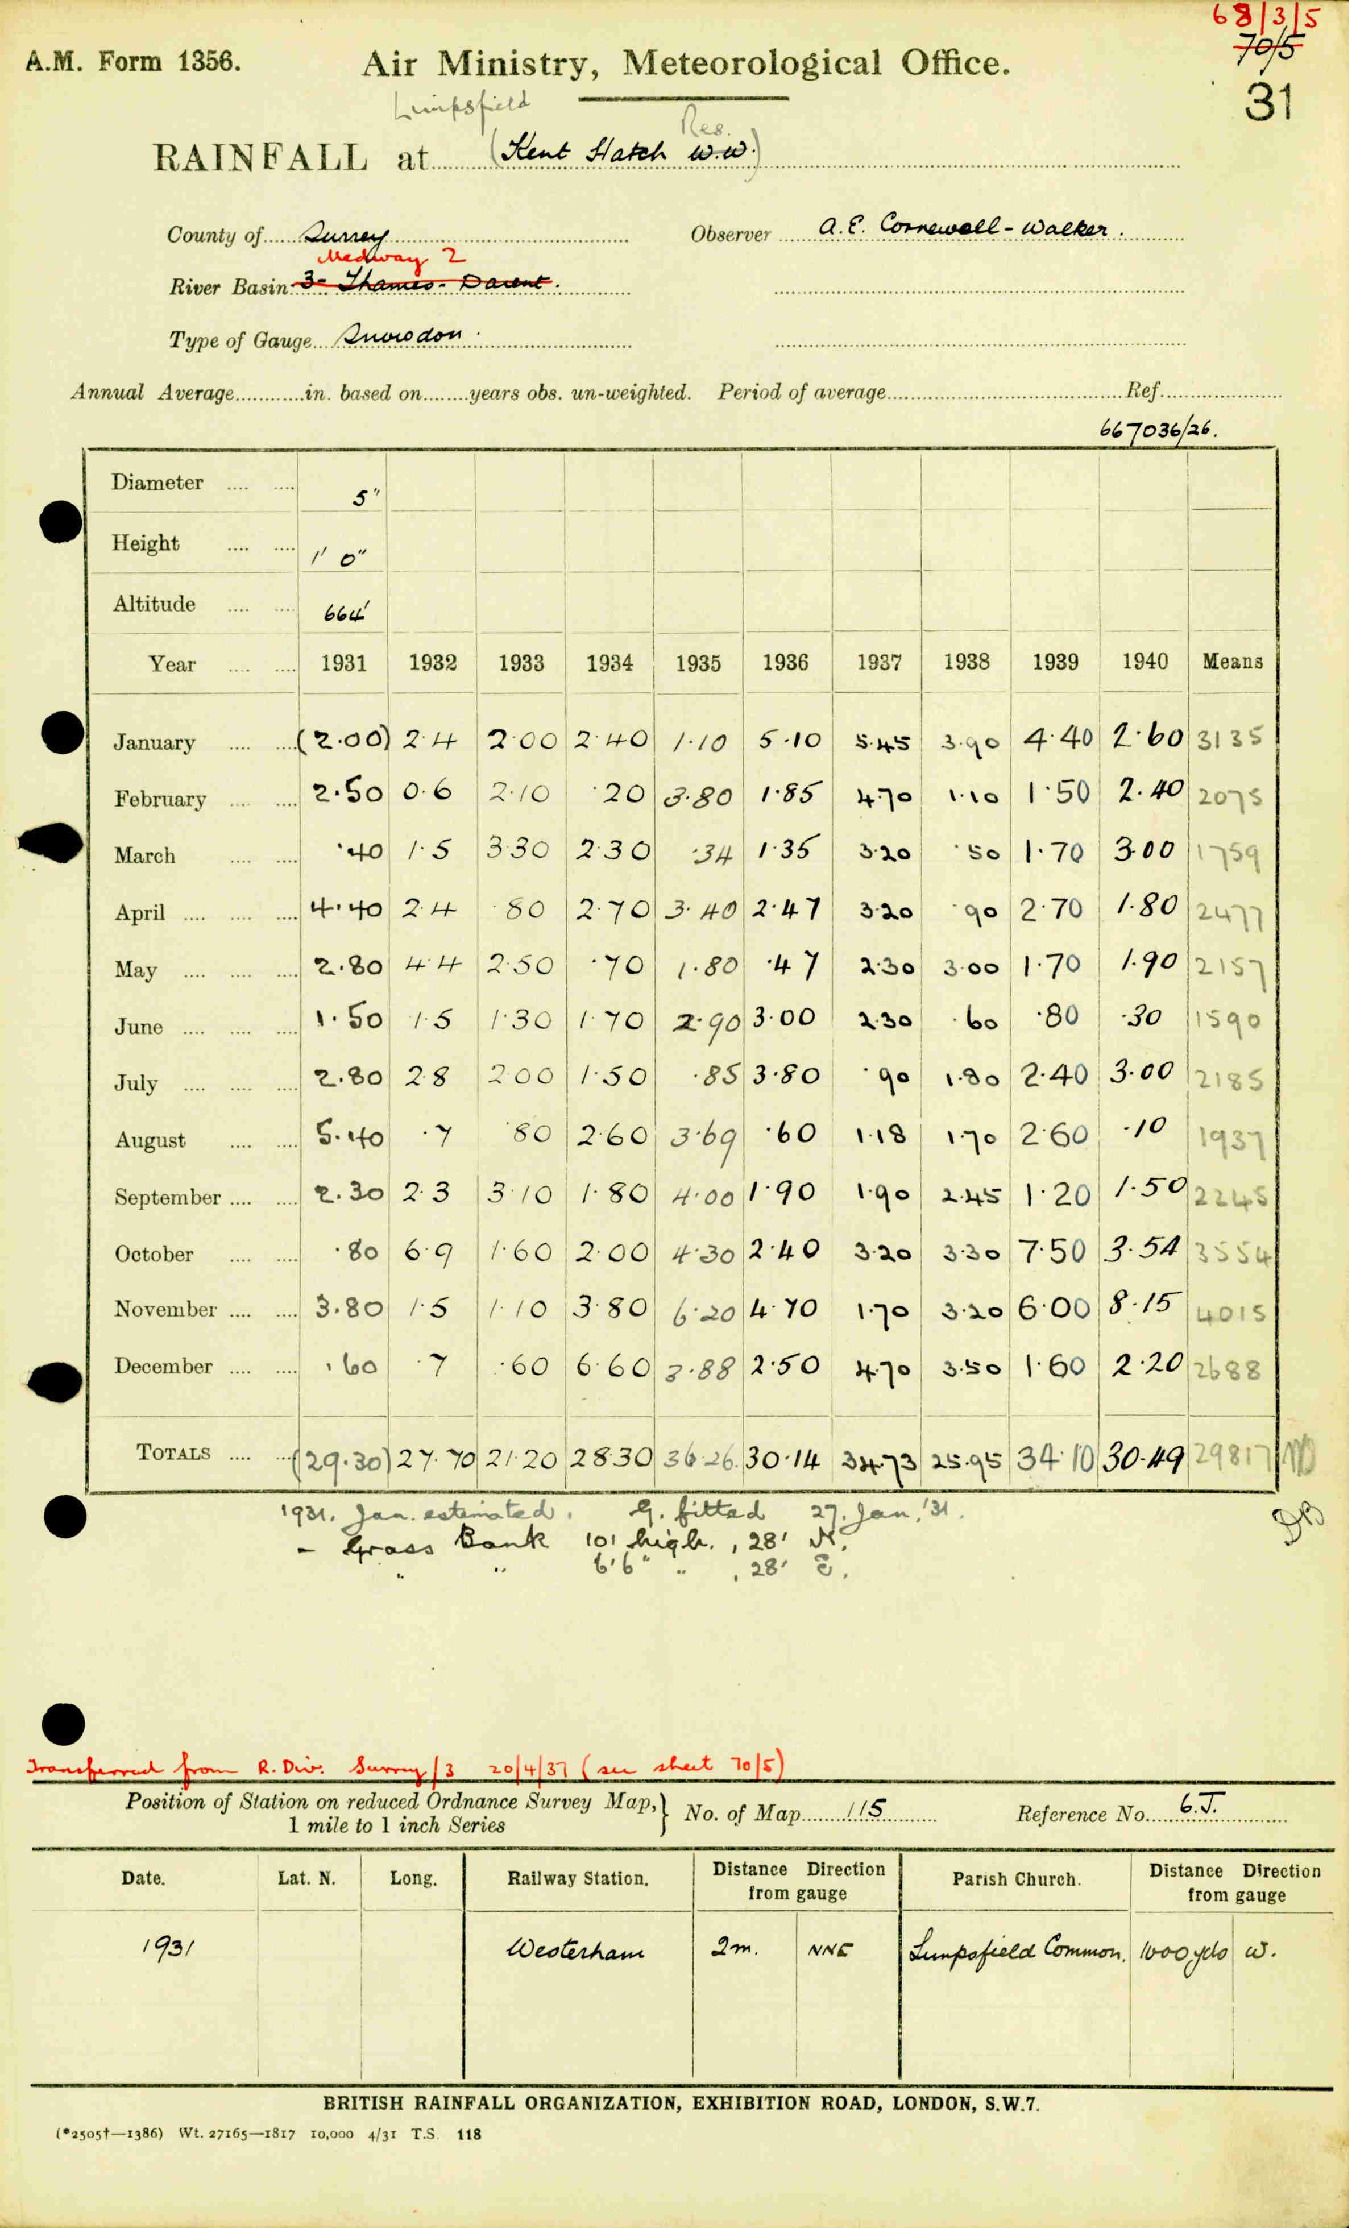 68/3/5
A.M. Form 1356.
Air Ministry, Meteorological Office.
70/5
31
Limpsfield
Res.
RAINFALL at (Kent Hatch W.W.)
County of Surrey
Observer A.E. Cornewall-Walker.
Medway 2
River Basin 3- Thames- Darent.
Type of Gauge Snowdon.
Annual Average............in. based on........years obs. un-weighted. Period of average............Ref............
667036/26.
Diameter .... .... 5"
Height .... .... 1' 0"
Altitude .... .... 664'
Year .... .... 1931 1932 1933 1934 1935 1936 1937 1938 1939 1940 Means
January .... .... (2.00) 2.4 2.00 2.40 1.10 5.10 5.45 3.90 4.40 2.60 3135
February .... .... 2.50 0.6 2.10 .20 3.80 1.85 4.70 1.10 1.50 2.40 2075
March .... .... .40 1.5 3.30 2.30 .34 1.35 3.20 .50 1.70 3.00 1759
April .... .... .... 4.40 2.4 .80 2.70 3.40 2.47 3.20 .90 2.70 1.80 2477
May .... .... .... 2.80 4.4 2.50 .70 1.80 .47 2.30 3.00 1.70 1.90 2157
June .... .... .... 1.50 1.5 1.30 1.70 2.90 3.00 2.30 .60 .80 .30 1590
July .... .... .... 2.80 2.8 2.00 1.50 .85 3.80 .90 1.80 2.40 3.00 2185
August .... .... 5.40 .7 .80 2.60 3.69 .60 1.18 1.70 2.60 .10 1937
September .... .... 2.30 2.3 3.10 1.80 4.00 1.90 1.90 2.45 1.20 1.50 2245
October .... .... .80 6.9 1.60 2.00 4.30 2.40 3.20 3.30 7.50 3.54 3554
November .... .... 3.80 1.5 1.10 3.80 6.20 4.70 1.70 3.20 6.00 8.15 4015
December .... .... .60 .7 .60 6.60 3.88 2.50 4.70 3.50 1.60 2.20 2688
TOTALS .... .... (29.30) 27.70 21.20 28.30 36.26 30.14 34.73 25.95 34.10 30.49 29817
1931. Jan. estimated. G. fitted 27. Jan. '31.
- Grass Bank 10' high., 28' N.
" " 6'6" " , 28' E.
Transferred from R. Div. Surrey/3 20/4/37 (see sheet 70/5)
Position of Station on reduced Ordnance Survey Map,} No. of Map 115 Reference No. 6.J.
1 mile to 1 inch Series
Date. Lat. N. Long. Railway Station. Distance Direction from gauge Parish Church. Distance Direction from gauge
1931 Westerham 2m. NNE Limpsfield Common. 1000 yds W.
BRITISH RAINFALL ORGANIZATION, EXHIBITION ROAD, LONDON, S.W.7.
(*2505†—1386) Wt. 27165—1817 10,000 4/31 T.S. 118